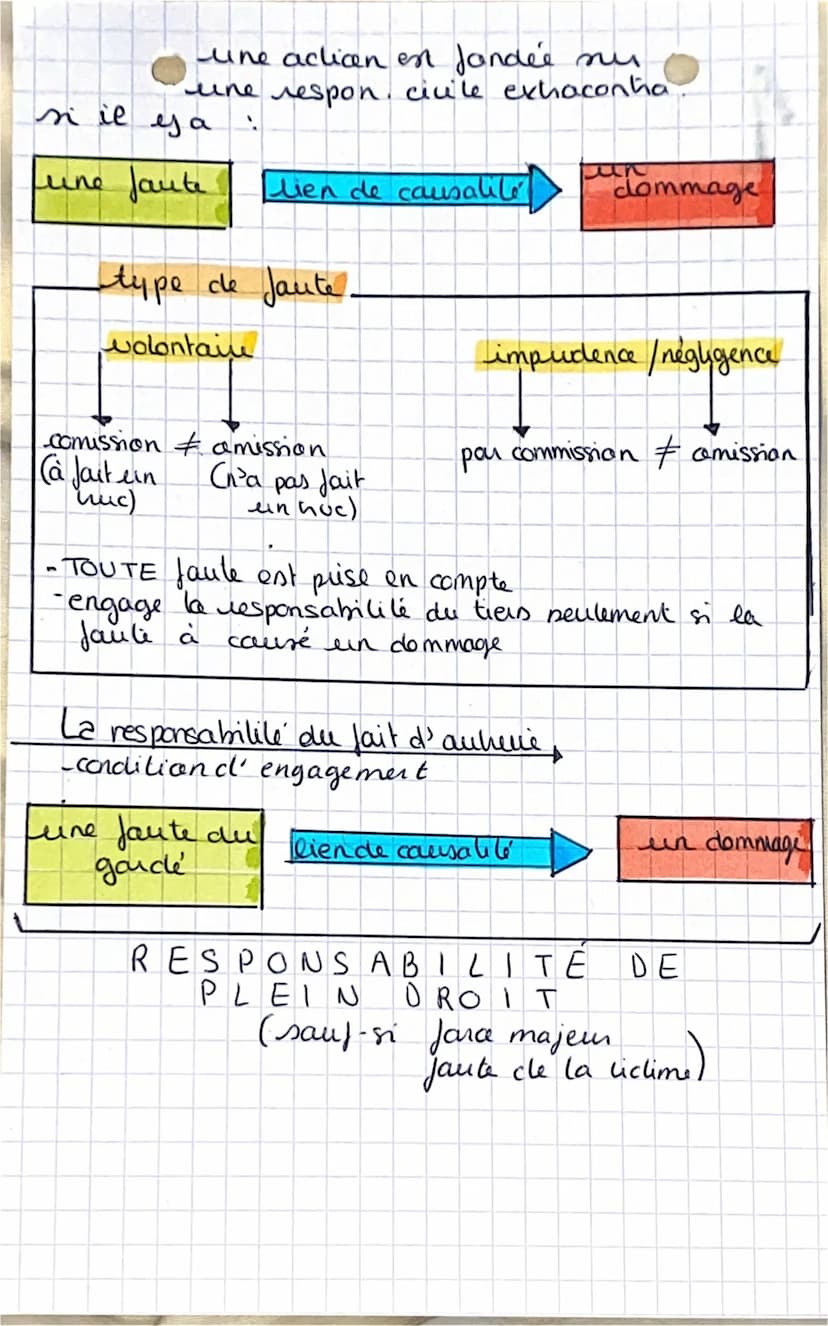 une action est fondée sur
une respon. civile extracontra.
si il y a :
une faute lien de causalité un dommage
type de faute
volontaire imprudence / négligence
comission ≠ omission par commission ≠ omission
(à fait un truc) (n'a pas fait un truc)
- TOUTE faute est prise en compte
- engage la responsabilité du tiers seulement si la
faute à causé un dommage
La responsabilité du fait d'autrui
- condition d'engagement
une faute du gardé lien de causalité un dommage
RESPONSABILITÉ DE
PLEIN DROIT
(sauf-si force majeur
faute de la victime)